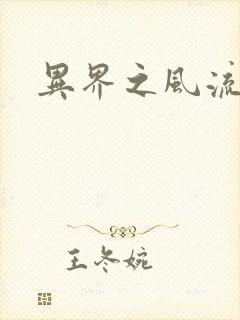 異界之風流
王冬婉